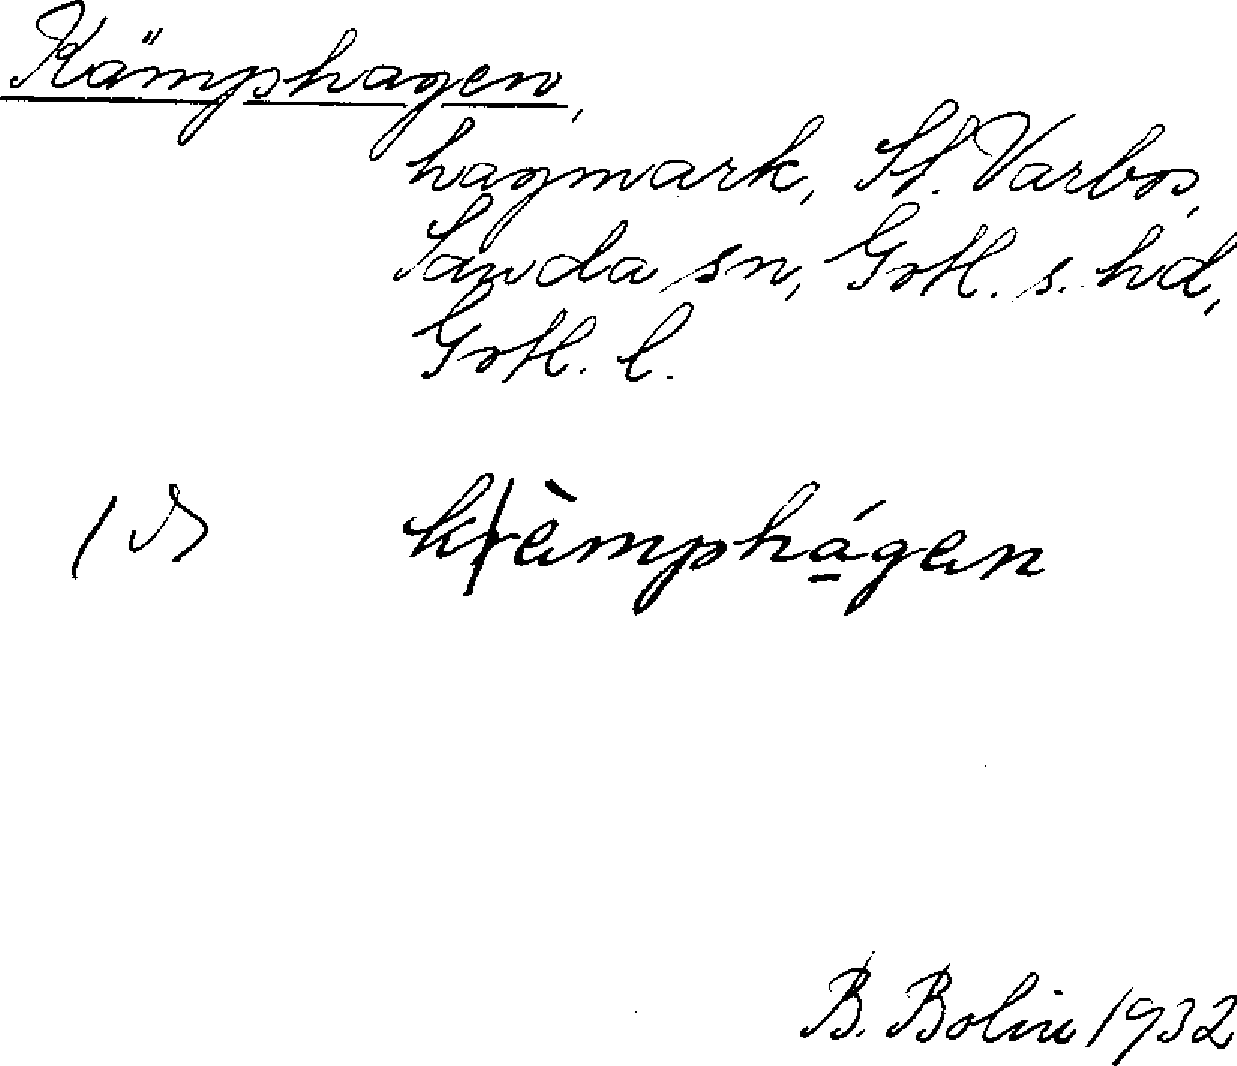 Kämphagen,
hagmark, St. Varbos,
Sanda sn, Gotl. s. hd,
Gotl. l.
krämphágen
B. Bolin 1932